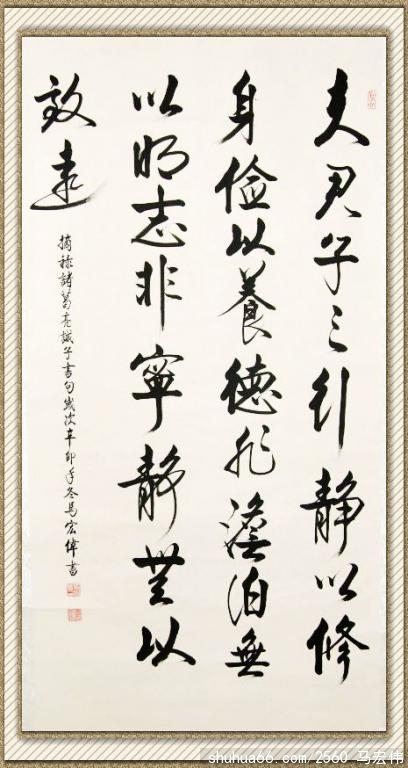 夫君子之行静以修
身俭以養德非澹泊無
以明志非寧静無以
致遠
摘禄諸葛亮誡子書句歲次辛卯年冬馬宏偉書
shuhua66.com/2560 马宏伟